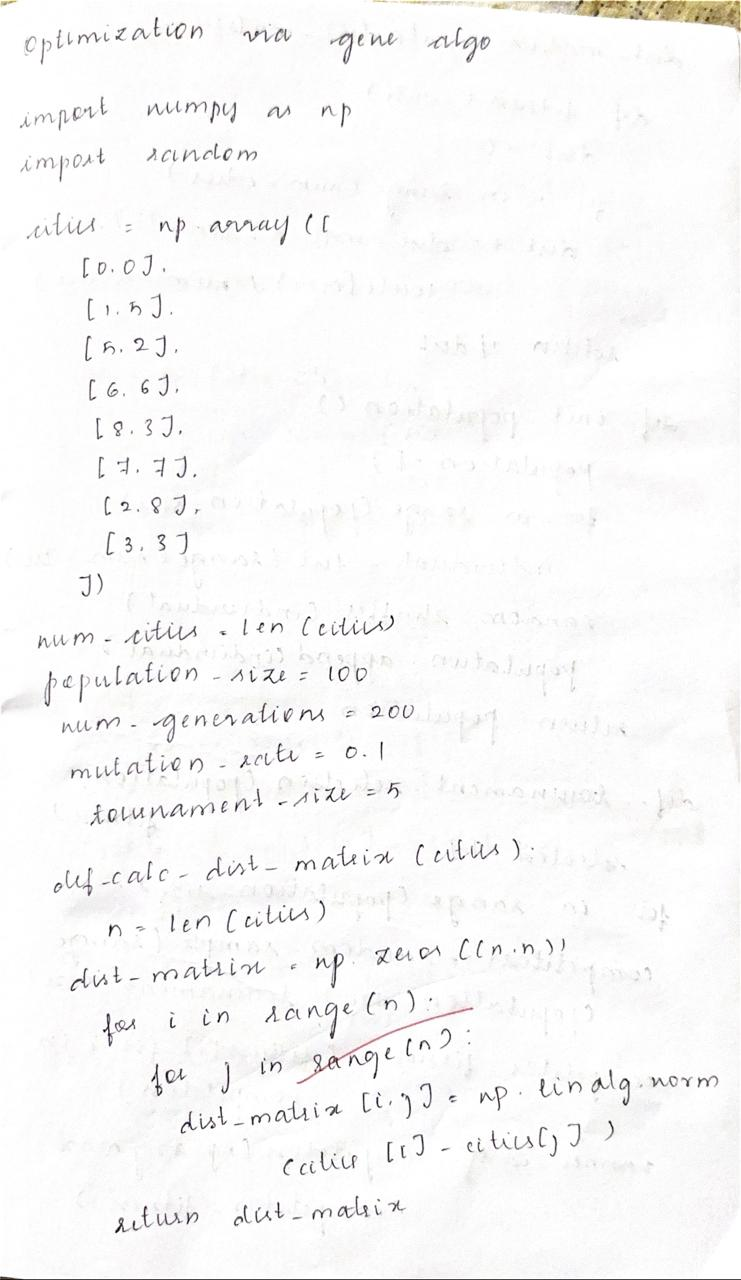 optimization via gene algo
import numpy as np
import random
cities = np.array ([
[0.0],
[1.5],
[5.2],
[6.6],
[8.3],
[7.7],
[2.8],
[3.3]
])
num_cities = len (cities)
population_size = 100
num_generations = 200
mutation_rate = 0.1
tournament_size = 5
def_calc_dist_matrix (cities):
n = len (cities)
dist_matrix = np.zeros ((n.n))
for i in range (n):
for j in range (n):
dist_matrix [i.j] = np.linalg.norm
(cities [i] - cities[j])
return dist_matrix